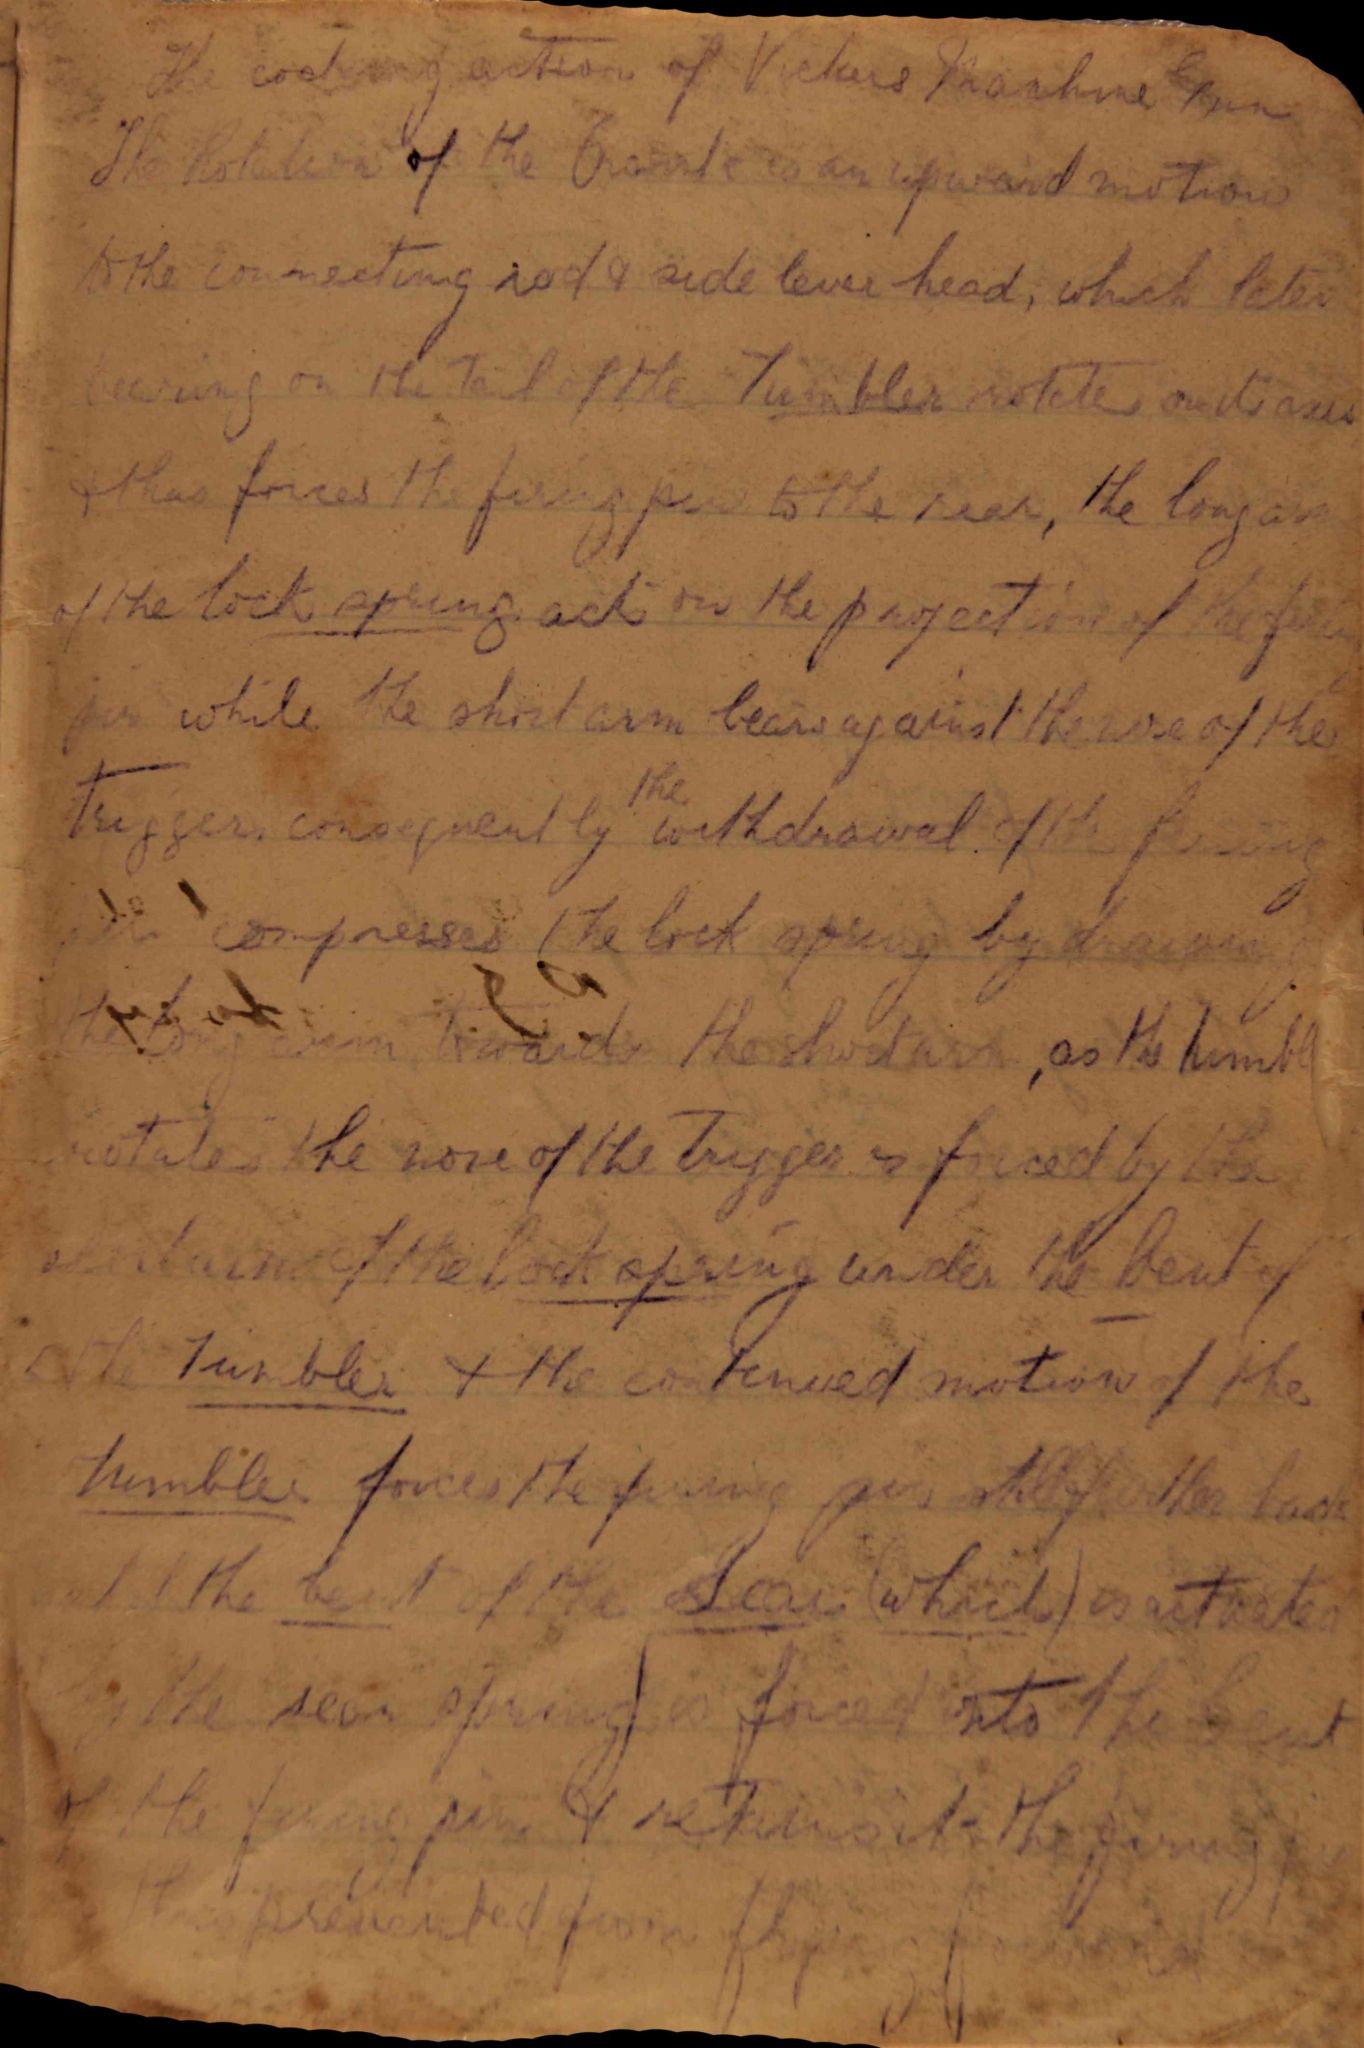 The cocking action of Vickers Machine Gun
The Rotation of the Crank is an upward motion
to the connecting rod & side lever head, which later
bearing on the tail of the Tumbler rotates on its axis
& thus forces the firing pin to the rear, the long arm
of the lock spring acts on the projection of the firing
pin while the short arm bears against the nose of the
Trigger. consequently the withdrawal of the firing
pin compresses the lock spring by drawing
the long arm towards the short arm, as the tumbler
rotates the nose of the Trigger is forced by the
short arm of the lock spring under the bent of
the Tumbler & the continued motion of the
tumbler forces the firing pin still further back
until the bent of the Sear (which) is actuated
by the sear spring) is forced into the bent
of the firing pin & retains it the firing pin
thus prevented from flying forward